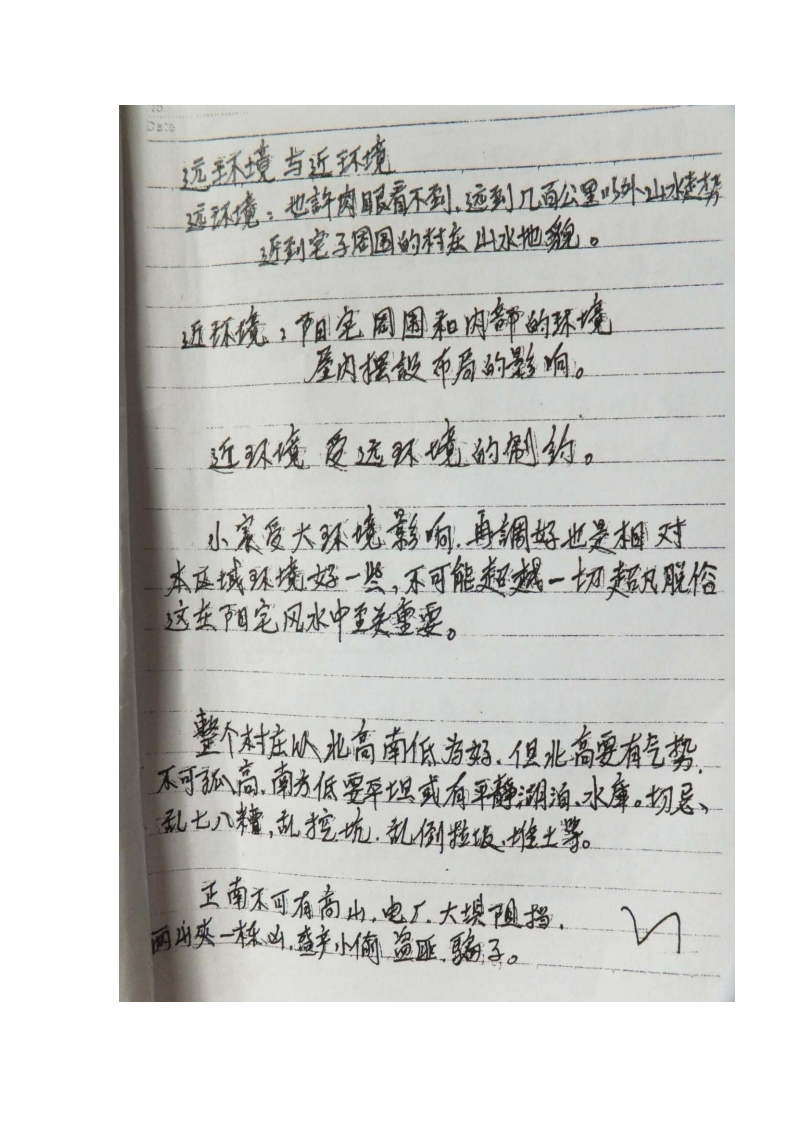 Date
远环境与近环境
远环境：也許肉眼看不到，远到几百公里以外山水走势
近到宅子周围的村庄山水地貌。
近环境：阳宅周围和内部的环境
屋内摆設布局的影响。
近环境受远环境的制约。
小宸受大环境影响，再調好也是相对
本区域环境好一些，不可能超越一切超凡脱俗
这在阳宅风水中至关重要。
整个村庄以北高南低为好，但北高要有气势，
不可孤高，南方低要平坦或有平静湖泊、水库。切忌、
乱七八糟，乱挖坑、乱倒垃圾、堆土等。
正南不可有高山、电厂、大坝阻挡，
两山夹一栋山，盛产小偷 盗匪、骗子。